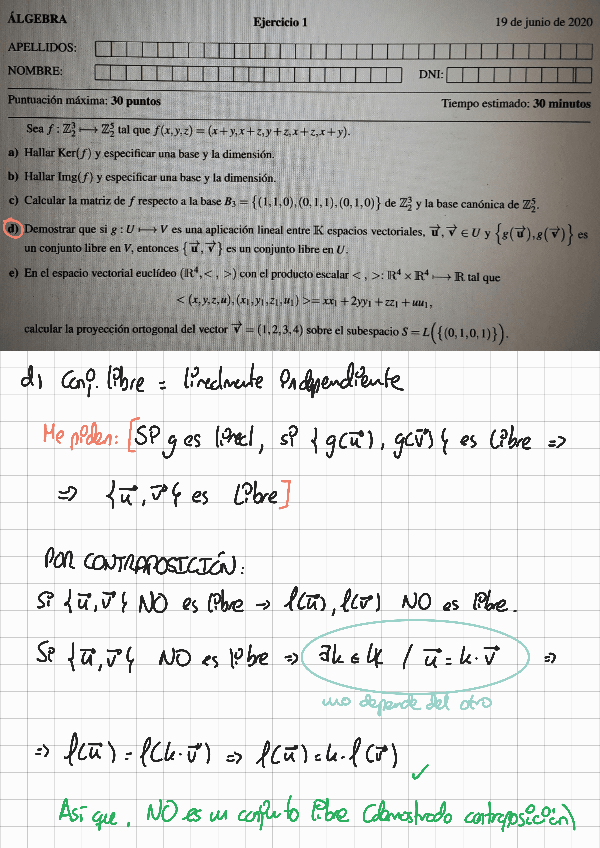 ÁLGEBRA Ejercicio 1 19 de junio de 2020
APELLIDOS:
NOMBRE: DNI:
Puntuación máxima: 30 puntos Tiempo estimado: 30 minutos
Sea f : ℤ₂³ ⟼ ℤ₂⁵ tal que f(x,y,z) = (x+y,x+z,y+z,x+z,x+y).
a) Hallar Ker(f) y especificar una base y la dimensión.
b) Hallar Img(f) y especificar una base y la dimensión.
c) Calcular la matriz de f respecto a la base B₃ = {(1,1,0),(0,1,1),(0,1,0)} de ℤ₂³ y la base canónica de ℤ₂⁵.
d) Demostrar que si g : U ⟼ V es una aplicación lineal entre 𝕂 espacios vectoriales, u⃗, v⃗ ∈ U y {g(u⃗),g(v⃗)} es
un conjunto libre en V, entonces {u⃗, v⃗} es un conjunto libre en U.
e) En el espacio vectorial euclídeo (ℝ⁴,< , >) con el producto escalar < , >: ℝ⁴ × ℝ⁴ ⟼ ℝ tal que
< (x,y,z,u),(x₁,y₁,z₁,u₁) >= xx₁ + 2yy₁ + zz₁ + uu₁,
calcular la proyección ortogonal del vector v⃗ = (1,2,3,4) sobre el subespacio S = L({(0,1,0,1)}).
d) Conj. libre = linealmente independiente
Me piden: [Si g es lineal, si {g(u⃗), g(v⃗)} es libre =>
=> {u⃗, v⃗} es libre]
POR CONTRAPOSICIÓN:
Si {u⃗, v⃗} NO es libre → f(u⃗), f(v⃗) NO es libre.
Si {u⃗, v⃗} NO es libre => ∃k ∈ 𝕂 / u⃗ = k · v⃗ =>
uno depende del otro
=> f(u⃗) = f(k · v⃗) => f(u⃗) = k · f(v⃗) ✓
Así que, NO es un conjunto libre (demostrado contraposición)